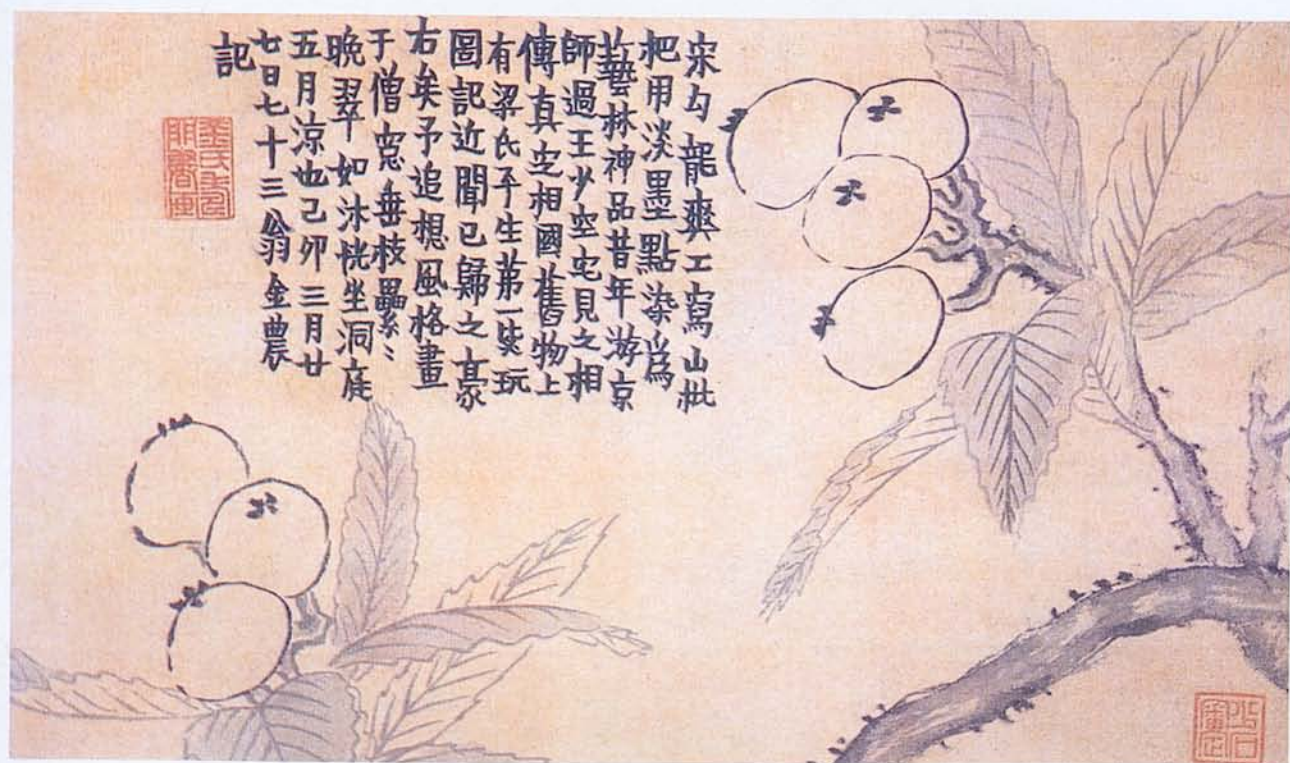 宋勾龍爽工寫山枇
杷用淡墨點染爲
藝林神品昔年游京
師過王少空宅見之相
傳真定相國舊物上
有梁氏平生苐一玩
圖記近聞已歸之豪
右矣予追想風格畫
于僧窻垂枝纍〻
晚翠如沐恍坐洞庭
五月涼也己卯三月廿
七日七十三翁金農
記
金氏壽門書畫